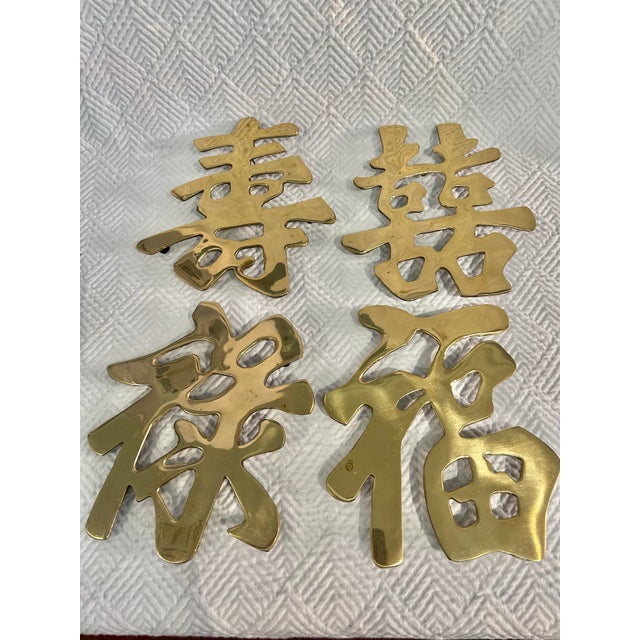 壽 囍
祿 福